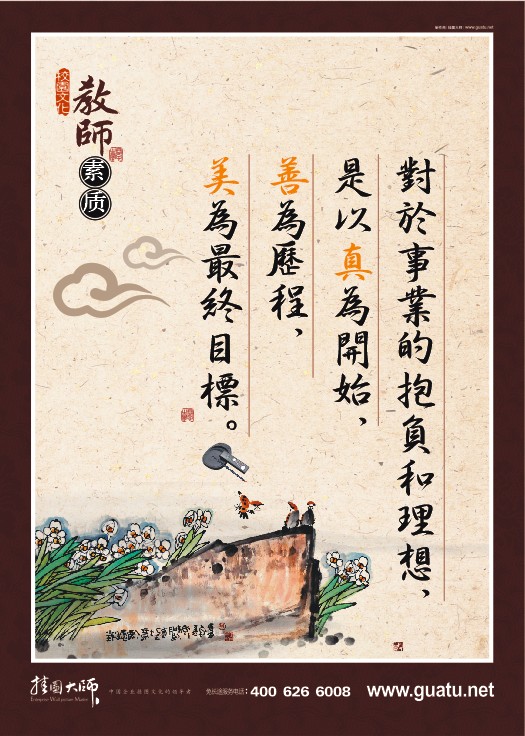 www.guatu.net
校園文化
教師
素质
對於事業的抱負和理想、
是以真為開始、
善為歷程、
美為最終目標。
挂图大师
免长途服务电话:400 626 6008
www.guatu.net